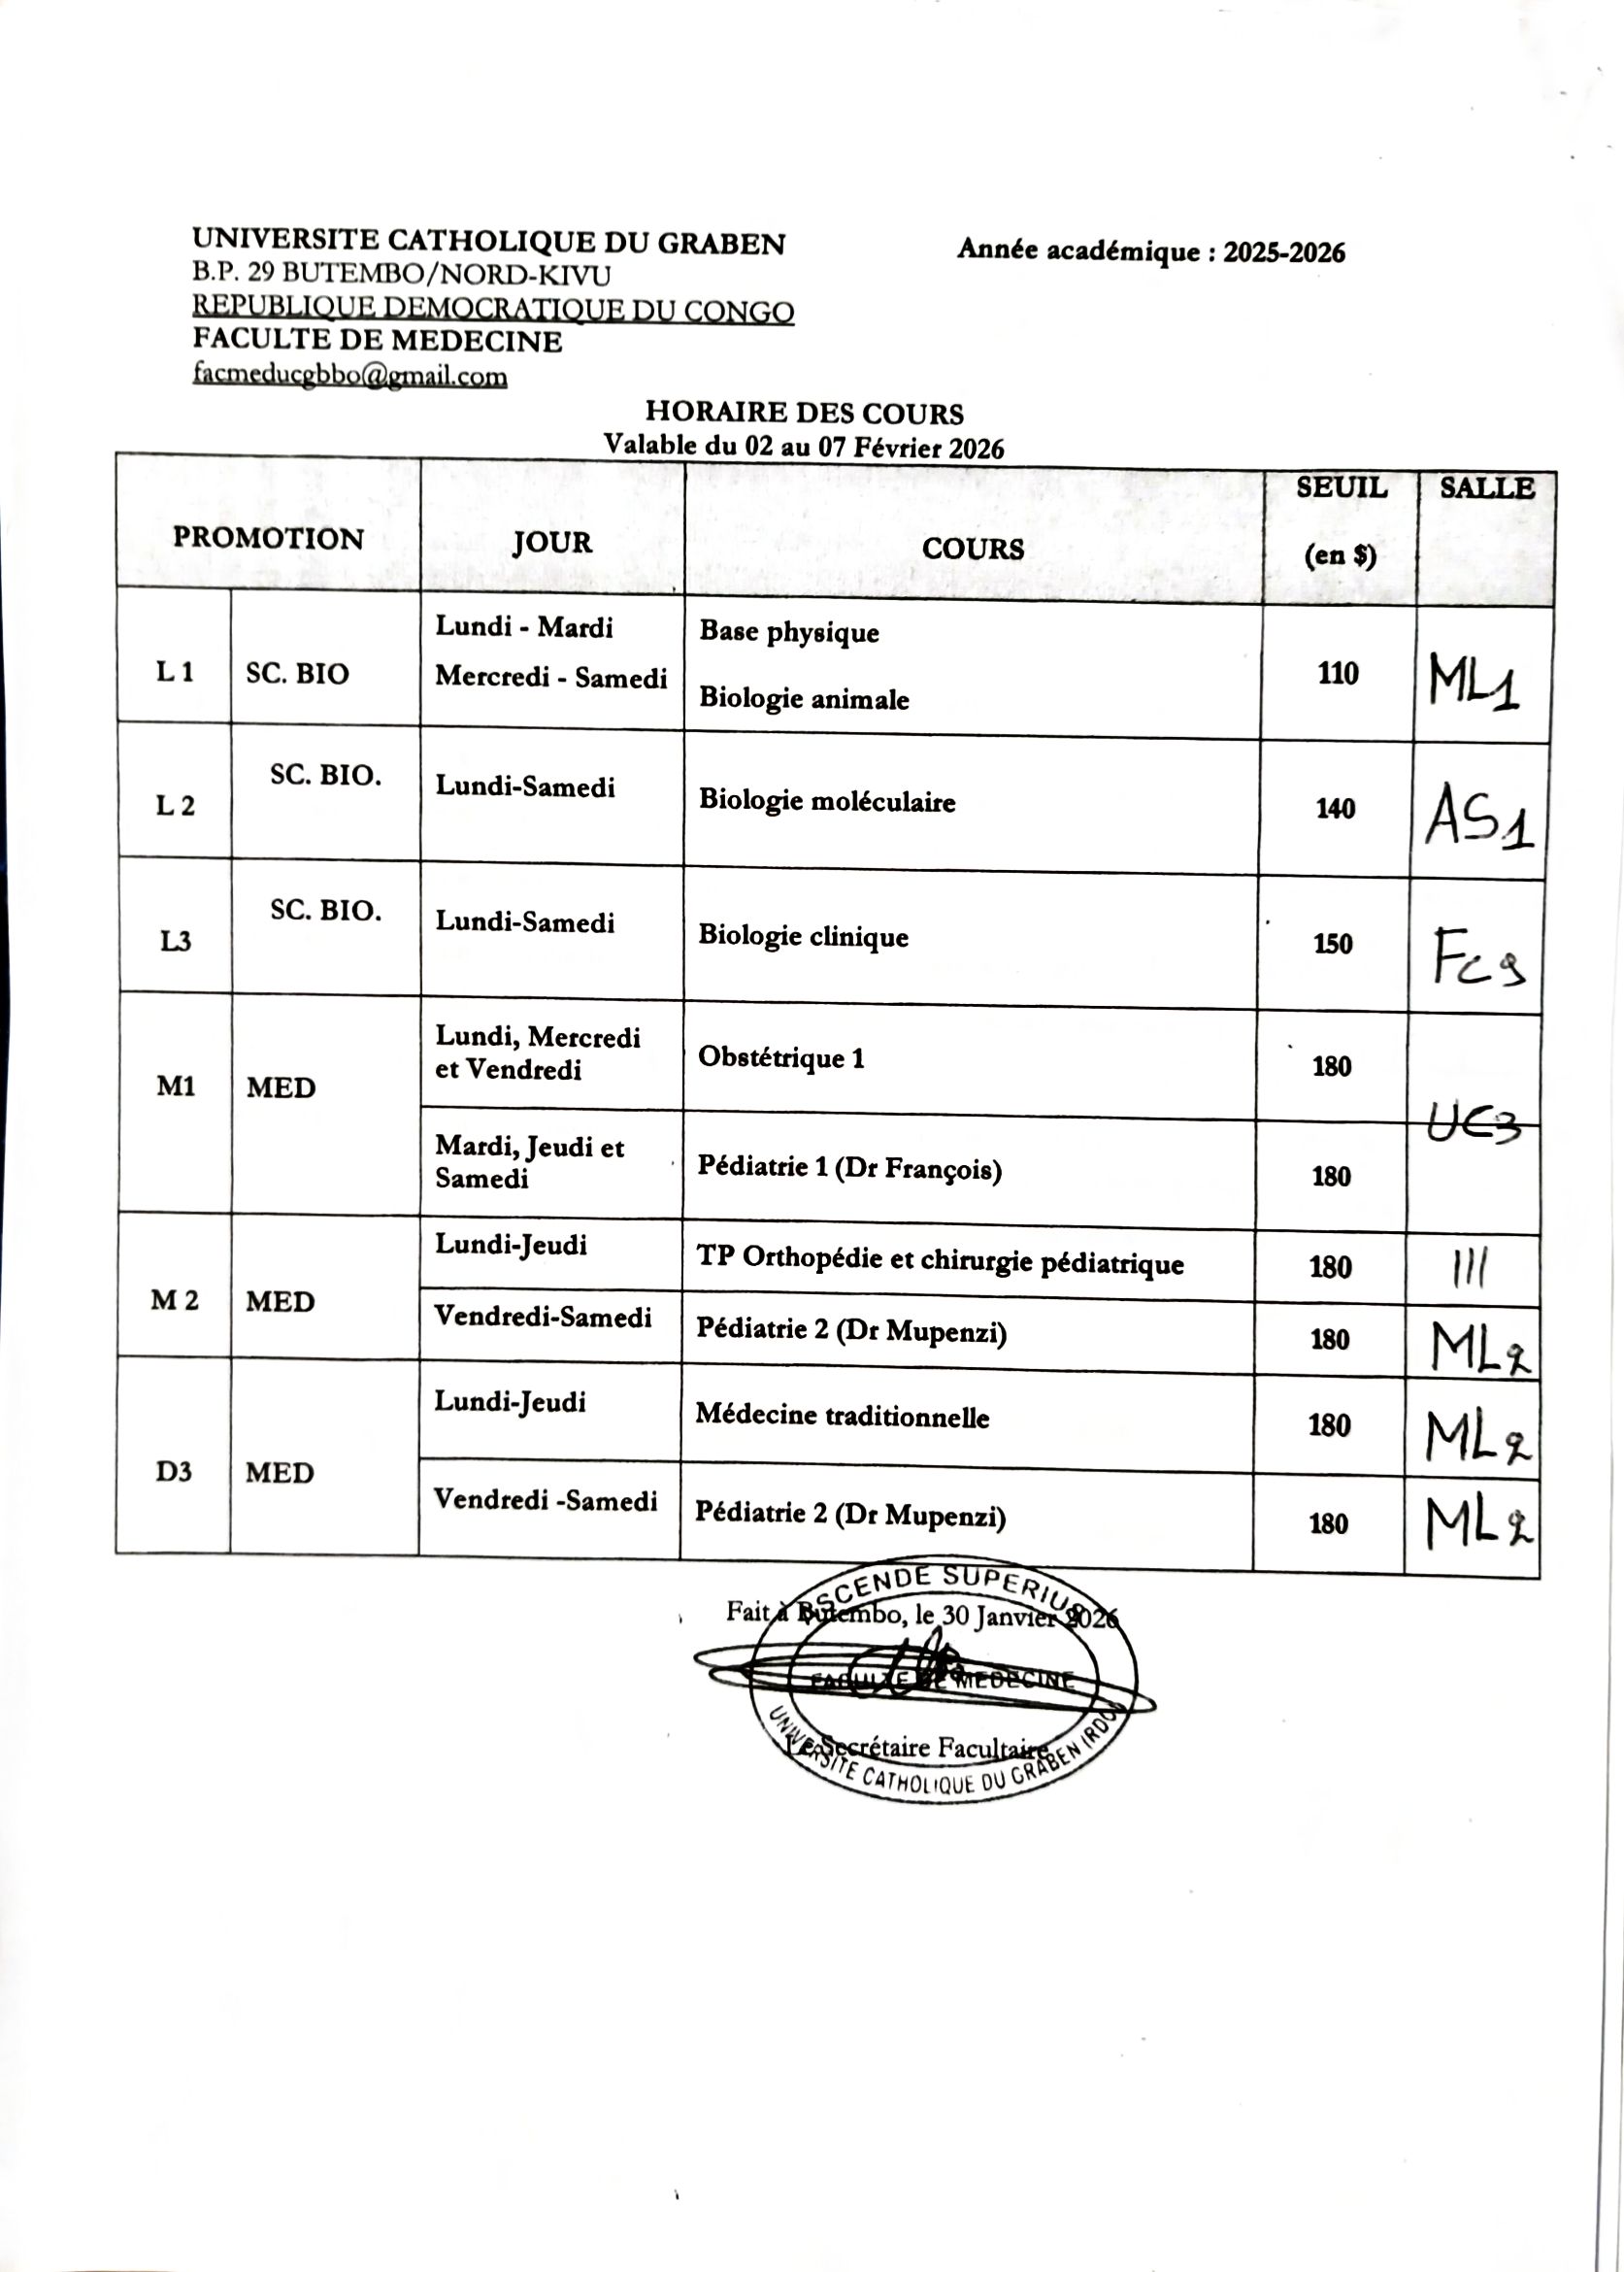 UNIVERSITE CATHOLIQUE DU GRABEN
Année académique : 2025-2026
B.P. 29 BUTEMBO/NORD-KIVU
REPUBLIQUE DEMOCRATIQUE DU CONGO
FACULTE DE MEDECINE
facmeducgbbo@gmail.com
HORAIRE DES COURS
Valable du 02 au 07 Février 2026
PROMOTION JOUR COURS SEUIL (en $) SALLE
L 1 SC. BIO Lundi - Mardi Base physique 110 ML1
Mercredi - Samedi Biologie animale
L 2 SC. BIO. Lundi-Samedi Biologie moléculaire 140 AS1
L3 SC. BIO. Lundi-Samedi Biologie clinique 150 Fc9
M1 MED Lundi, Mercredi et Vendredi Obstétrique 1 180 UC3
Mardi, Jeudi et Samedi Pédiatrie 1 (Dr François) 180
M 2 MED Lundi-Jeudi TP Orthopédie et chirurgie pédiatrique 180 ///
Vendredi-Samedi Pédiatrie 2 (Dr Mupenzi) 180 ML2
D3 MED Lundi-Jeudi Médecine traditionnelle 180 ML2
Vendredi -Samedi Pédiatrie 2 (Dr Mupenzi) 180 ML2
ASCENDE SUPERIUS
Fait à Butembo, le 30 Janvier 2026
FACULTE DE MEDECINE
Le Secrétaire Facultaire
UNIVERSITE CATHOLIQUE DU GRABEN (RDC)